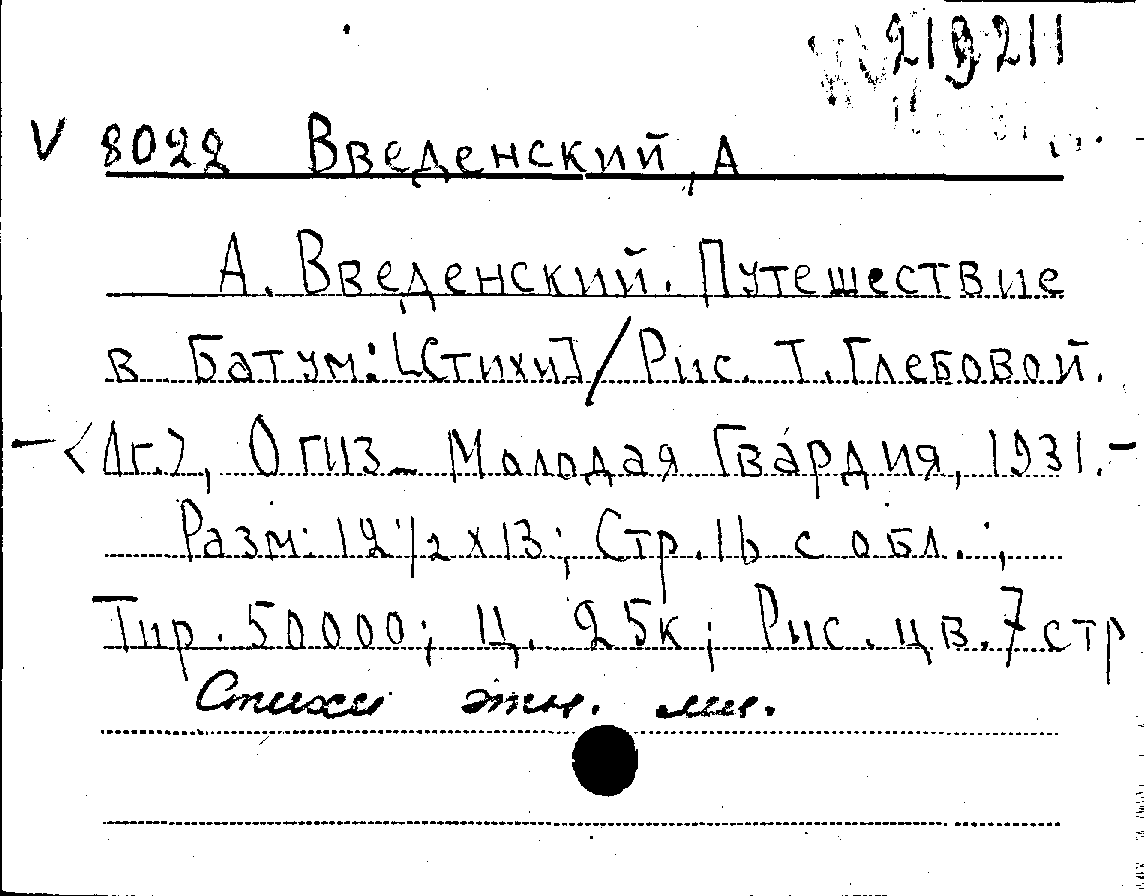 219211
V 8022 Введенский, А
А. Введенский. Путешествие
в Батум: [Стихи] / Рис. Т. Глебовой.
— <Лг.>, Огиз – Молодая Гвардия, 1931. –
Разм: 12 1/2 x 13; Стр. 16 с обл.;
Тир. 50000; Ц. 25к; Рис. цв. 7 стр
Стихи